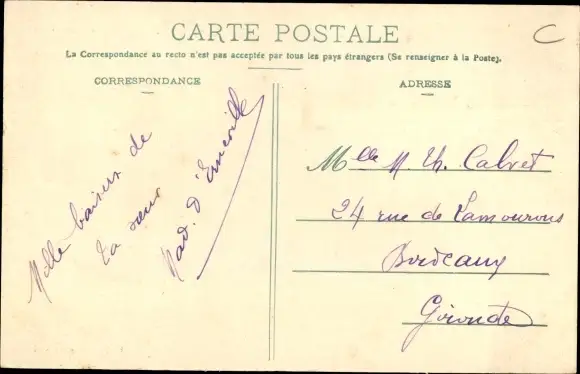 C
CARTE POSTALE
La Correspondance au recto n'est pas acceptée par tous les pays étrangers (Se renseigner à la Poste).
CORRESPONDANCE
ADRESSE
Mille baisers de
ta sœur
Mad. d'
Mlle M. Th. Calvet
24 rue de Lamourous
Bordeaux
Gironde